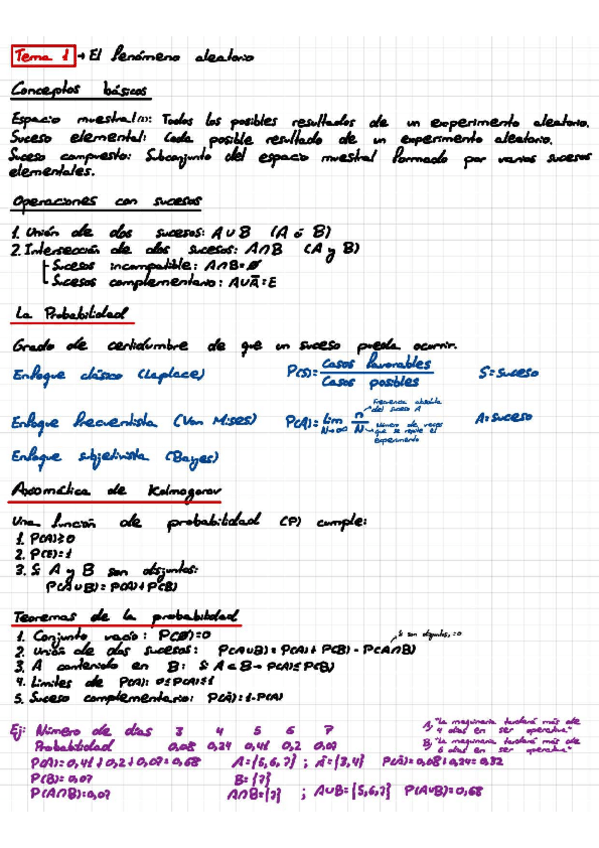 Tema 1 → El fenómeno aleatorio
Conceptos básicos
Espacio muestral(E): Todos los posibles resultados de un experimento aleatorio.
Suceso elemental: Cada posible resultado de un experimento aleatorio.
Suceso compuesto: Subconjunto del espacio muestral formado por varios sucesos
elementales.
Operaciones con sucesos
1. Unión de dos sucesos: A∪B (A ó B)
2. Intersección de dos sucesos: A∩B (A y B)
Sucesos incompatible: A∩B=Ø
Sucesos complementario: A∪Ā=E
La Probabilidad
Grado de certidumbre de que un suceso pueda ocurrir.
Enfoque clásico (Laplace) P(S)= Casos favorables / Casos posibles S=suceso
Enfoque frecuentista (Von Mises) P(A)= lim N→∞ n/N A=suceso
Frecuencia absoluta del suceso A
Número de veces que se repite el experimento
Enfoque subjetivista (Bayes)
Axiomática de Kolmogorov
Una función de probabilidad (P) cumple:
1. P(A)≥0
2. P(E)=1
3. Si A y B son disjuntos:
P(A∪B)=P(A)+P(B)
Teoremas de la probabilidad
1. Conjunto vacío: P(Ø)=0
2. Unión de dos sucesos: P(A∪B)=P(A)+P(B)-P(A∩B) Si son disjuntos, =0
3. A contenido en B: Si A⊂B→P(A)≤P(B)
4. Límites de P(A): 0≤P(A)≤1
5. Suceso complementario: P(Ā)=1-P(A)
Ej: Número de días 3 4 5 6 7
Probabilidad 0,08 0,24 0,41 0,2 0,07
A: "La maquinaria tardará más de
4 días en ser operativa"
B: "La maquinaria tardará más de
6 días en ser operativa"
P(A)=0,41+0,2+0,07=0,68 A={5,6,7} ; Ā={3,4} P(Ā)=0,08+0,24=0,32
P(B)=0,07 B={7}
P(A∩B)=0,07 A∩B={7} ; A∪B={5,6,7} P(A∪B)=0,68